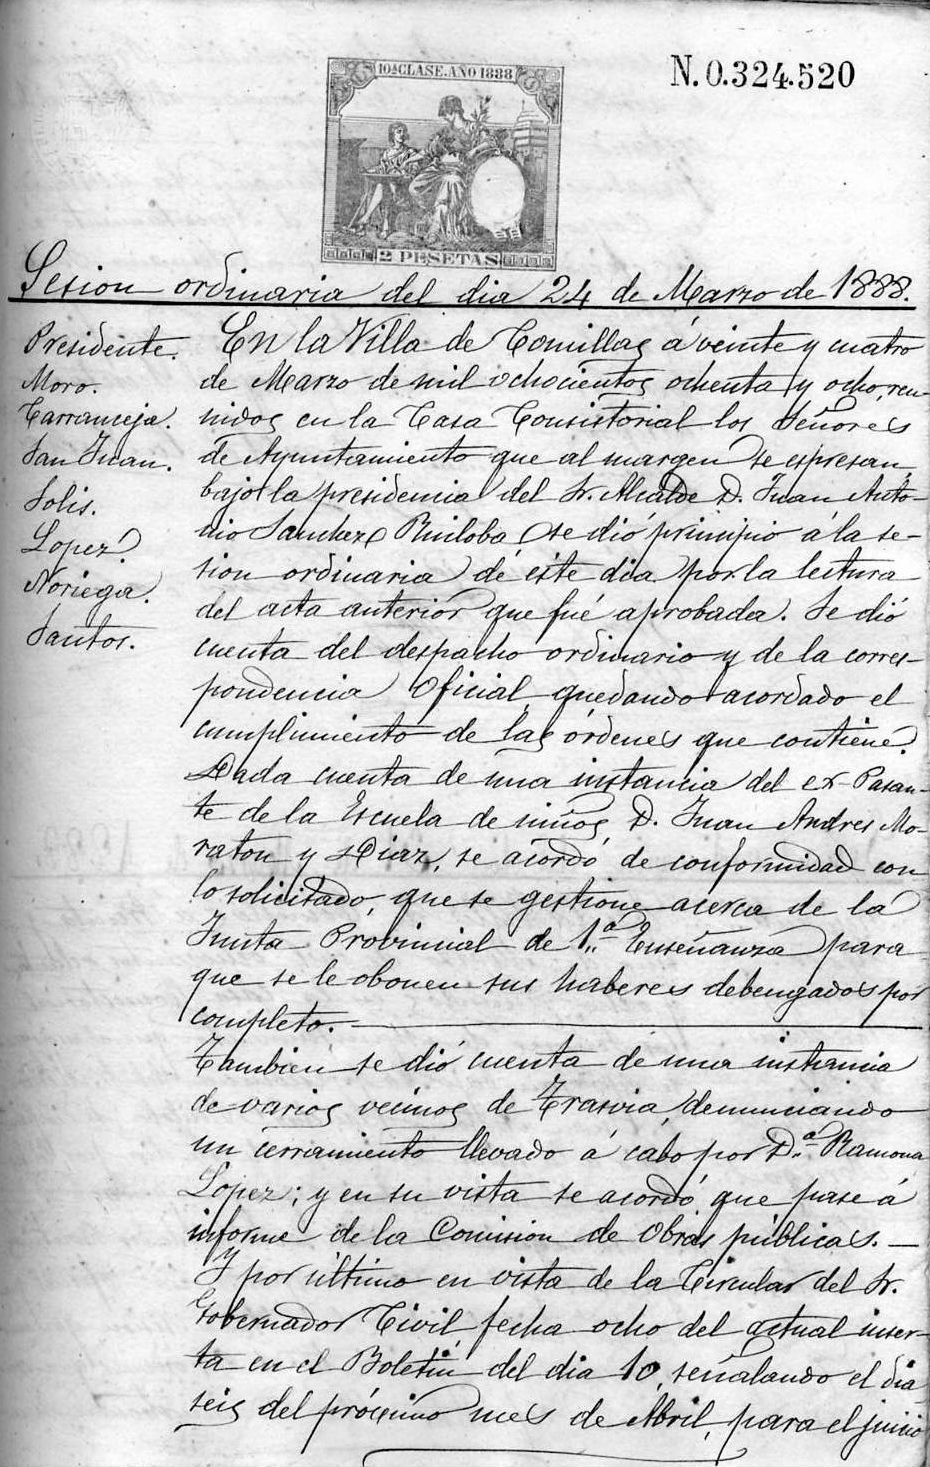 10ª CLASE. AÑO 1888
N. 0.324.520
2 PESETAS
Sesion ordinaria del dia 24 de Marzo de 1888.
Presidente.
Moro.
Tarranceja.
San Juan.
Solis.
Lopez
Noriega.
Santos.
En la Villa de Comillas á veinte y cuatro
de Marzo de mil ochocientos ochenta y ocho, reu-
nidos en la Casa Consistorial los Señores
de Ayuntamiento que al margen se espresan,
bajo la presidencia del Sr. Alcalde D. Juan Anto-
nio Sanchez Ruiloba se dió principio á la se-
sion ordinaria de éste dia por la lectura
del acta anterior que fué aprobada. Se dió
cuenta del despacho ordinario y de la corres-
pondencia Oficial, quedando acordado el
cumplimiento de las órdenes que contiene.
Dada cuenta de una instancia del ex-Pasan-
te de la Escuela de niños, D. Juan Andres Mo-
raton y Diaz, se acordó de conformidad con
lo solicitado, que se gestione acerca de la
Junta Provincial de 1.ª Enseñanza para
que se le obonen sus haberes debengados por
completo.
Tambien se dió cuenta de una instancia
de varios vecinos de Trasvia, denunciando
un cerramiento llevado á cabo por D.ª Ramona
Lopez; y en su vista se acordó que pase á
informe de la Comision de Obras públicas.
Y por último en vista de la Circular del Sr.
Gobernador Civil, fecha ocho del actual inser-
ta en el Boletin del dia 10, señalando el dia
seis del próximo mes de Abril, para el juicio